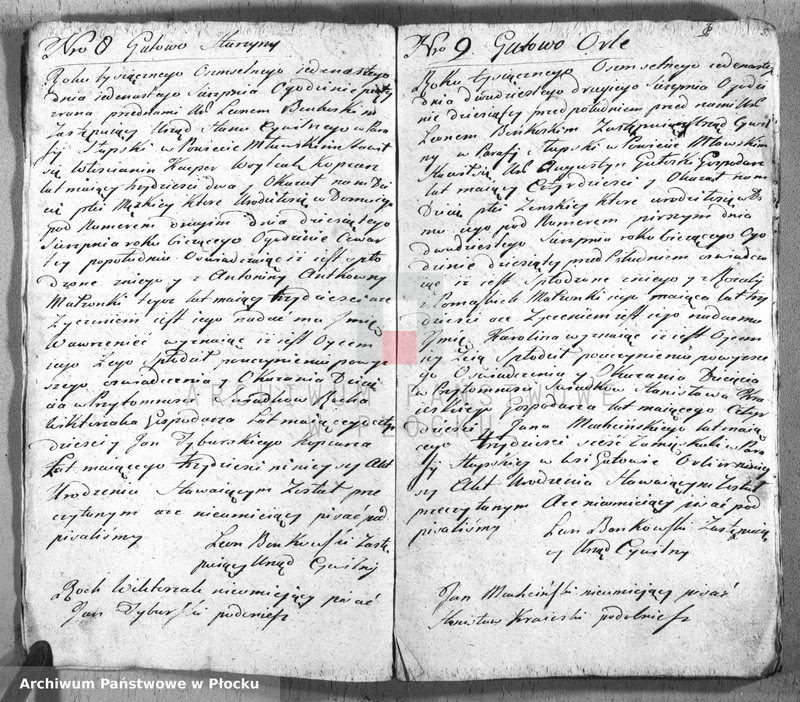 Nro 8 Gutowo
Roku tysiącznego Osmsetnego iedenastego
dnia iedenastego Sierpnia O godzinie
przednami Leonem Bonkoskim
Zastępuiący Urząd Stanu Cywilnego w Para
fij Słupski w Powiecie Mławskim Stawił
się Włoscianin Kacper Woytcak Kopcarz
lat maiący trzydziesci dwa Okazał nam Dzi
cię płci Męskiey ktore Urodziło się w Domu iego
pod Numerem drugim dnia dziesiątego
Sierpnia roku bieżącego O godzinie Czwar
tey popołudniu Oswiadczaiąc iż iest spło
dzone zniego y z Antoniny
Małżonki iego lat maiący trzydziesci
Zyczeniem iest iego nadac mu Imię
Wawrzeniec wyznaiąc iż iest Oycem
iego Zego Spłodził pouczynieniu powyż
szego oswiadczenia y Okazania Dzieci
w Przytomnosci swiadkow Rocha
Wiktorzaka Gospodarza Lat maiącego czter
dziesci y Jan Tyburskiego Kopcarza
Lat maiącego trzydziesci ninieyszy Akt
Urodzenia Stawaiącym Został prze
czytanym ale nieumieiący pisać pod
pisalismy
Leon Bonkowski Zastę
puiący Urząd Cywilny
Roch Wiktorzak nieumieiący pisać
Jan Tyburski podobniesz
Nro 9 Gutowo Orle
Roku tysiącznego Osmsetnego iedenastego
dnia dwudziestego drugiego Sierpnia O godzi
nie dziesiątey przed południem przed nami
Leonem Bonkoskim Zastępuiący Urząd Cywil
ny w Parafij Słupski w Powiecie Mławskim
Stawił się Augustyn Gutoski Gospodarz
lat maiący Czterdziesci y Okazał nam
Dzicię płci Zenskiey ktore urodziło się w Do
mu iego pod Numerem pierszym dnia
dwudziestego Sierpnia roku bieżącego O go
dzinie dziesiątey przed Południem oswiadcza
iąc iż iest Spłodzone zniego y z Rozalij
z Małżonki iego maiąca lat trzy
dziesci Zyczeniem iest iego nadaemu
Imię Karolina wyznaiąc iż iest Oycem
iey Spłodził pouczynieniu powyższe
go Oswiadczenia y Okazania Dziecięcia
w Przytomnosci Swiadkow Stanisława Kra
ieskiego Gospodarza lat maiącego Czter
dziesci y Jana Maducinskiego lat maią
cego trzydziesci szesc Zamięskali w Para
fij Słupskiey w wsi Gutowie Orli niniey
szy Akt Urodzenia Stawaiącym Został
przeczytanym Ale nieumieiący pisać pod
pisalismy
Leon Bonkowski Zastępuią
cy Urząd Cywilny
Jan nieumieiący pisać
Stanisław Kraieski podobniesz
ARCHIWUM PAŃSTWOWE
W PŁOCKU
Archiwum Państwowe w Płocku